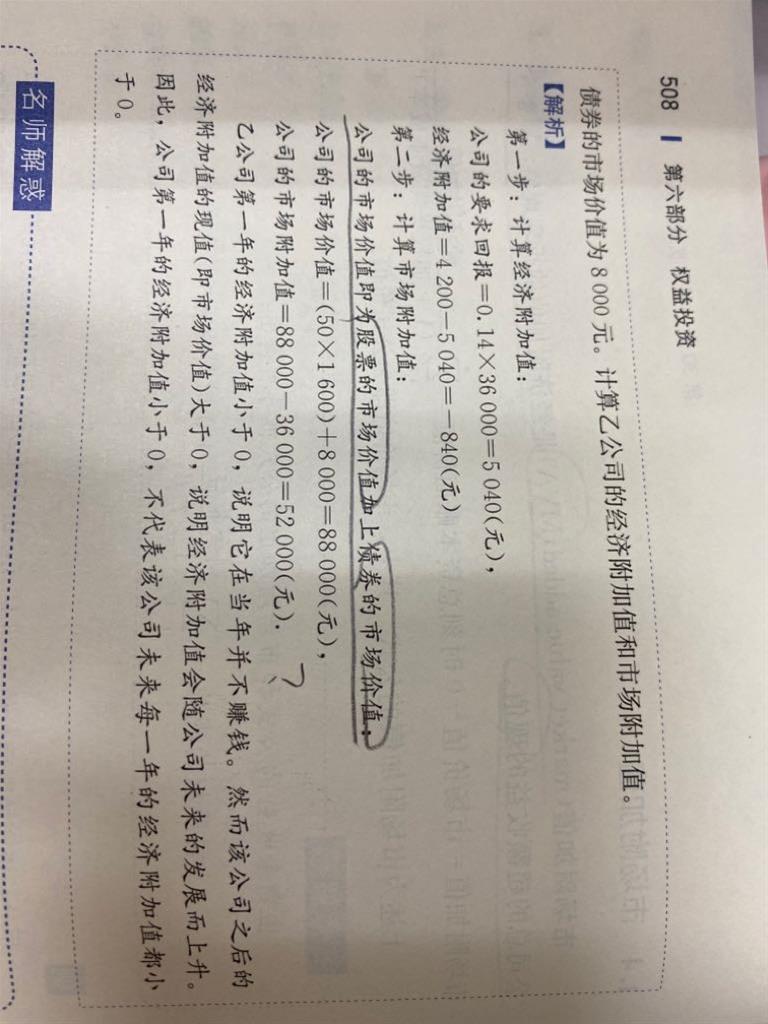 508 第六部分 权益投资
债券的市场价值为 8 000 元。计算乙公司的经济附加值和市场附加值。
【解析】
第一步：计算经济附加值：
公司的要求回报=0.14×36 000=5 040(元)，
经济附加值=4 200-5 040=-840(元)
第二步：计算市场附加值：
公司的市场价值即为股票的市场价值加上债券的市场价值：
公司的市场价值=(50×1 600)+8 000=88 000(元)，
公司的市场附加值=88 000-36 000=52 000(元). ?
乙公司第一年的经济附加值小于 0，说明它在当年并不赚钱。然而该公司之后的
经济附加值的现值(即市场价值)大于 0，说明经济附加值会随公司未来的发展而上升。
因此，公司第一年的经济附加值小于 0，不代表该公司未来每一年的经济附加值都小
于 0。
名师解惑